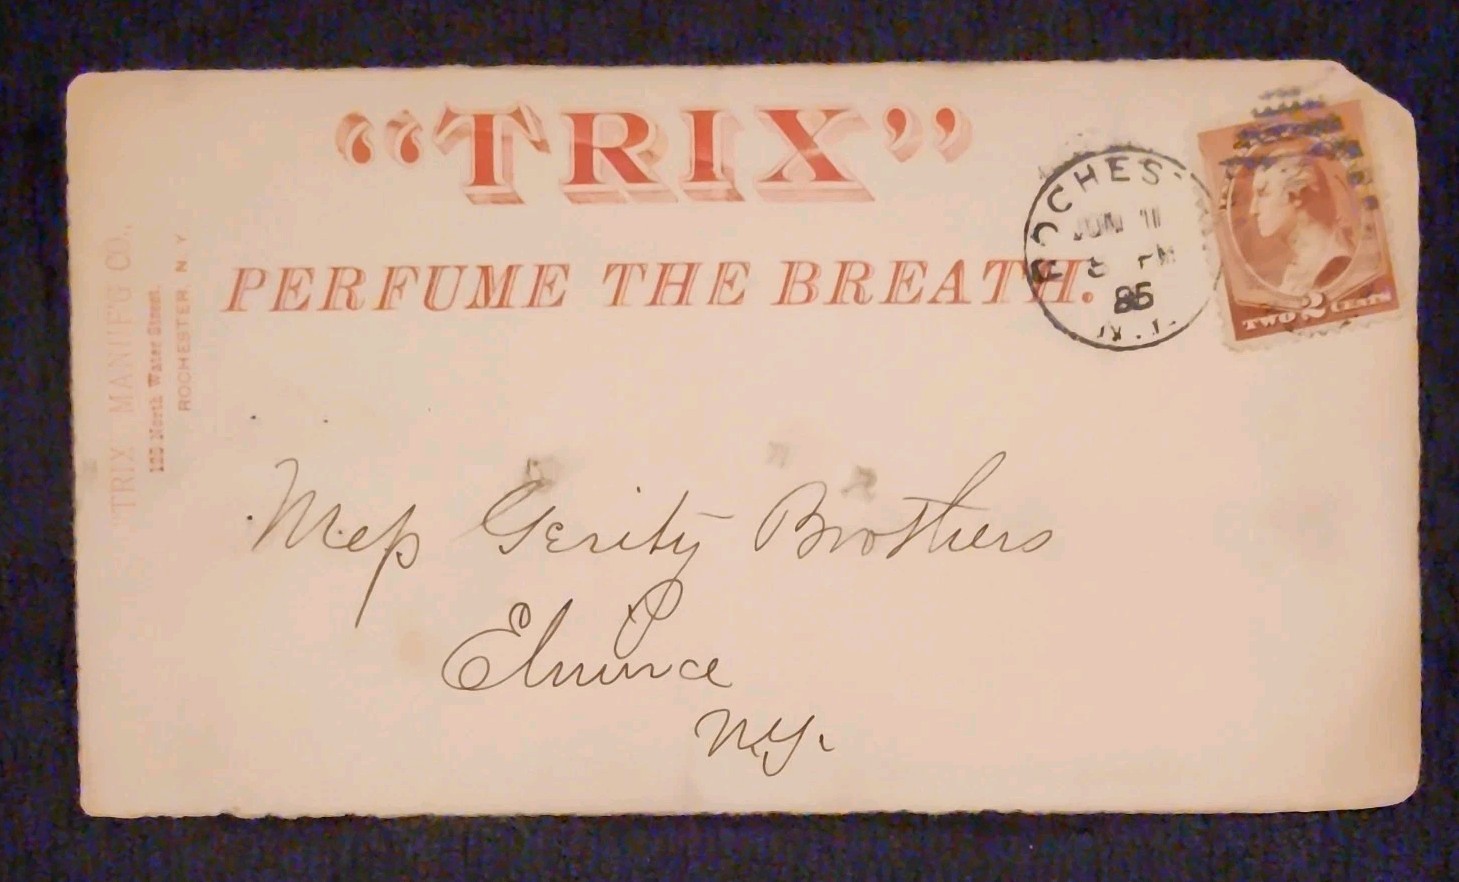 “TRIX”
PERFUME THE BREATH.
"TRIX MANUF'G CO.,
North Water Street.
ROCHESTER, N.Y
ROCHES
JUN 11
PM
N.Y.
TWO 2 CENTS
Gerity Brothers
Elmira
N.Y.